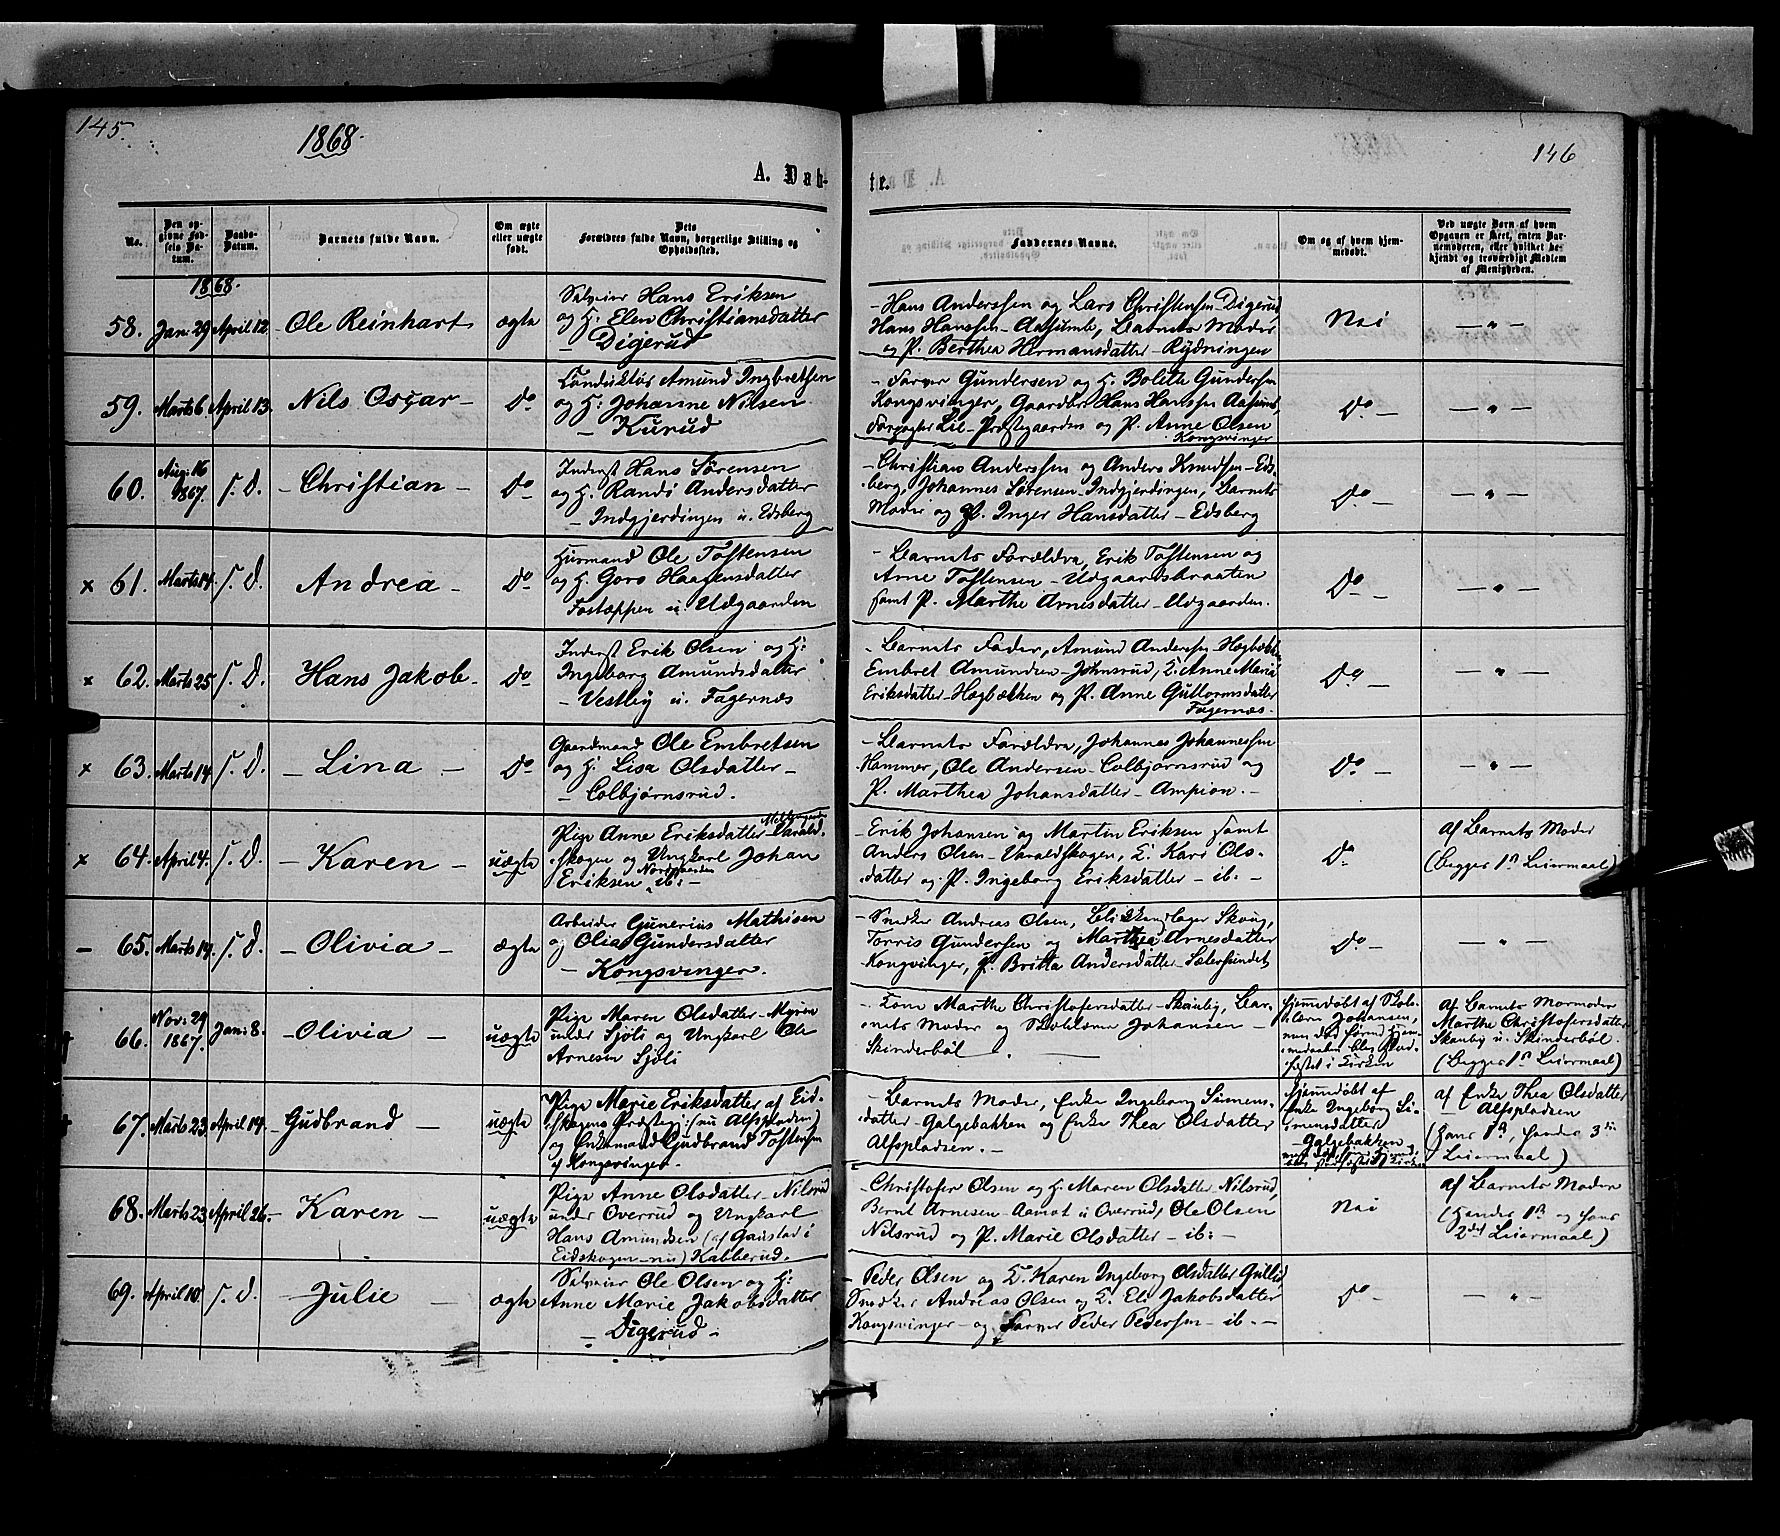 145.
1868.
A. Dåb-
No.
Den opgivne Fødsels Datum.
Daabs-Datum.
Barnets fulde Navn.
Om ægte eller uægte født.
Dets Forældres fulde Navn, borgerlige Stilling og Opholdssted.
1868.
58. Jan: 29 April 12 Ole Reinhart ægte
Selveier Hans Eriksen
og H. Elen Christiansdatter
- Digerud
59. Marts 6 April 13. Nils Oscar - Do
Amund Ingbretsen
og H: Johanne Nilsen
- Kurud
60. Aug: 16 1867. S. D. - Christian - Do
Inderst Hans Sørensen
og H. Randi Andersdatter
- Indgjerdingen u. Edsberg
x 61. Marts 14. S. D. Andrea - Do
Huusmand Ole Tostensen
og H. Goro Haagensdatter
u. Udgaarden
x 62. Marts 25 S. D. Hans Jakob - Do
Inderst Erik Olsen og H:
Ingeborg Amundsdatter
- Vestby u. Fagernæs
x 63. Marts 14 S. D. - Lina - Do
Gaardmand Ole Embretsen
og H. Lisa Olsdatter -
- Colbjørnsrud.
x 64. April 4. S. D. - Karen - uægte
Pige Anne Eriksdatter Varald-
skogen og Ungkarl Johan
Eriksen ib: -
- 65. Marts 19. S. D. - Olivia - ægte
Arbeider Gunerius Mathisen
og Olia Gundersdatter
- Kongsvinger.
66. Nov: 29 1867. Jan: 8. - Olivia - uægte
Pige Maren Olsdatter - Myren
under Sjøli og Ungkarl Ole
Arnesen Sjøli
67. Marts 23 April 19. Gudbrand - uægte
Pige Marie Eriksdatter af Eid-
skogens Præstegj: (nu Alfspladsen)
og Enkemand Gudbrand Tostensen
af Kongsvinger.
68. Marts 23 April 26 - Karen - uægte
Pige Anne Olsdatter - Nilsrud
under Overrud og Ungkarl
Hans Amundsen (af Gaustad i
Eidskogen - nu) Kabberud.
69. April 10 S. D. Julie - ægte
Selveier Ole Olsen og H:
Anne Marie Jakobsdatter
- Digerud -
146
te.
Faddernes Navne.
Om og af hvem hjemmedøbt.
Ved uægte Børn af hvem Opgaven er skeet, enten Barnemoderen, eller hvilket bekjendt og troværdigt Medlem af Menigheden.
- Hans Anderssen og Lars Christensen Digerud
Hans Hanssen - Aasumb, Barnets Moder
og P. Berthea Hermansdatter - Rydningen
Nei - " -
- Farver Gundersen og H. Bolette Gundersen
Kongsvinger, Gaardbr. Hans Hanssen Aasumb,
Forpagter Lie - Præstegaarden og P. Anne Olsen
Kongsvinger
Do - - " -
- Christian Anderssen og Anders Knudsen - Eds-
berg, Johannes Sørensen - Indgjerdingen, Barnets
Moder og P. Inger Hansdatter - Edsberg
Do - - " -
- Barnets Forældre, Erik Tostensen og
Arne Tostensen - Udgaardsbraaten
samt P. Marthe Arnesdatter - Udgaarden.
Do - - " -
- Barnets Fader, Amund Andersen - Hegbækken
Embret Amundsen - Johnsrud, K. Anne Maria
Eriksdatter - Hegbækken og P. Anne Guttormsdatter
Fagernæs -
Do - - " -
- Barnets Forældre, Johannes Johannessen
Hammer, Ole Andersen - Colbjørnsrud og
P. Marthea Johansdatter - Ampion. -
Do - - " -
- Erik Johansen og Martin Eriksen samt
Anders Olsen - Varaldskogen, K. Kari Ols-
datter og P. Ingeborg Eriksdatter - ib: -
Do - af Barnets Moder
(begges 1st Leiermaal)
- Snedker Andreas Olsen, Blikkenslager Skoug,
Torris Gundersen og Marthea Arnesdatter
Kongsvinger, P. Britta Andersdatter - Sætersundet
Do - - " -
- Kone Marthe Christofersdatter - Skanby, Bar-
nets Moder og Skolelærer Johansen -
Skinderbøl
hjemmedøbt af Skole-
lærer Johansen,
hvis
blev stad-
fæstet i Kirken
af Barnets Mormoder
Marthe Christofersdatter
Skanby u. Skinderbøl.
(begges 1st Leiermaal)
- Barnets Moder, Enke Ingeborg Simens-
datter - Galgebakken og Enke Thea Olsdatter
Alfspladsen. -
hjemmedøbt af
Enke Ingeborg Si-
mensdatter
- Galgebakken
af Enke Thea Olsdatter
Alfspladsen
(hans 1st, hendes 3die
Leiermaal)
- Christofer Olsen og H. Maren Olsdatter - Nilsrud,
Bernt Arnesen - Aamot u. Overrud, Ole Olsen
Nilsrud og P. Marie Olsdatter - ib: -
Nei
af Barnets Moder
(hendes 1st og hans
2det Leiermaal)
- Peder Olsen og K. Karen Ingeborg Olsdatter Gullid
Snedker Andreas Olsen og K. Eli Jakobsdatter
Kongsvinger - og Farver Peder Pedersen - ib. -
Do - - " -